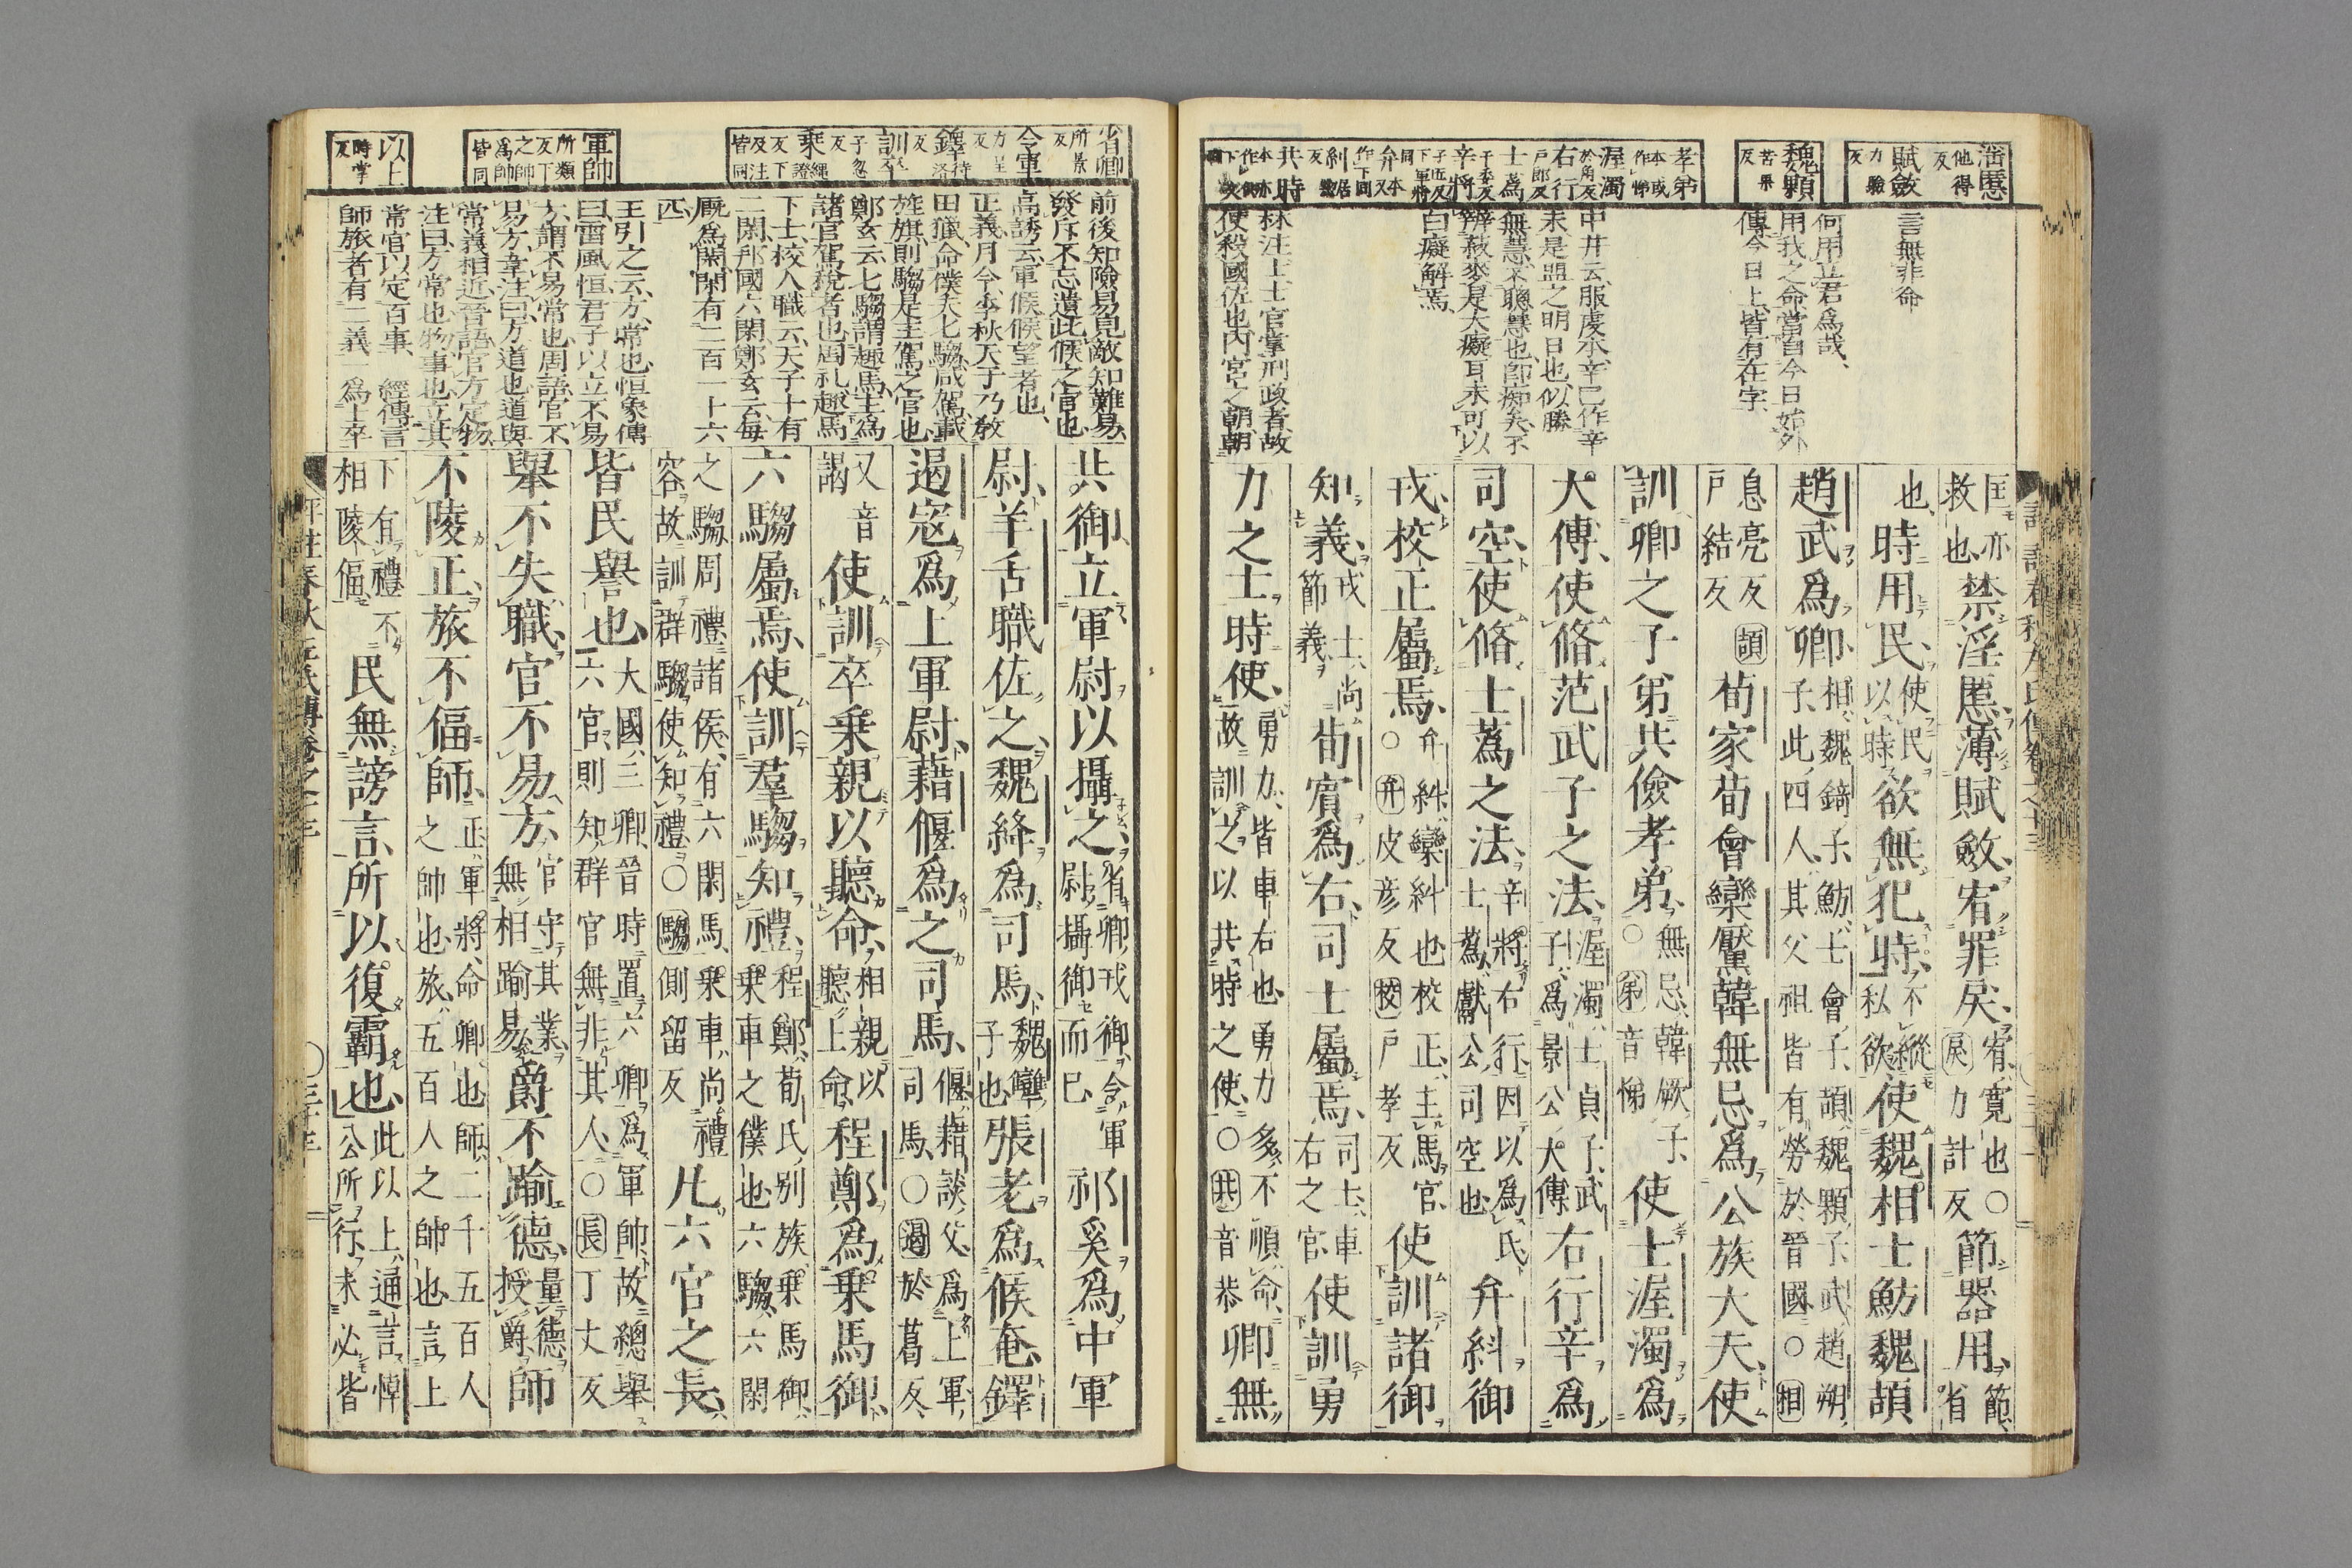 滔慝
他得
反
賦斂
力驗
反
魏顆
苦果
反
孝弟
本或
作悌
渥濁
於角反
右行
戶郎反
士蒍
于委反
辛將
子匠反
下軍將
同
弁
本又
作卞同
糾
居黝
反
共時
言無非命
何用立君爲哉、
用我之命當自今日始外
傳今日上、皆有在字、
中井云、服虔本辛巳作辛
未是盟之明日也似勝
無慧、不聰慧也、卽痴矣、不
辨菽麥、是大癡耳、未可以
白癡解焉、
林注、上士、官掌刑政者、故
使殺國佐也、內宮之朝、朝
匡亦
救也
禁淫慝、薄賦斂、宥罪戾、
宥、寬也○
戾力計反
節器用、
節、
省
也、時用民、
使民
以時
欲無犯時、
不縱
私欲
使魏相士魴魏頡
趙武爲卿、
相、魏錡子、魴、士會子、頡、魏顆子、武、趙朔
子、此四人、其父祖皆有勞於晉國○相
息亮反
戶結反
頡
荀家荀會欒黶韓無忌爲公族大夫、使
訓卿之子弟共儉孝弟、
無忌、韓厥子
○弟音悌
使士渥濁爲
大傅、使脩范武子之法、
渥濁、士貞子、武
子、爲景公大傅
右行辛、爲
司空、使脩士蒍之法、
辛將右行、因以爲氏
士蒍、獻公司空也、
弁糾御
戎、校正屬焉、
弁糾、欒糾也、校正、主馬官、
○弁皮彦反校戶孝反
使訓諸御
知義、
戎士、尚
節義、
荀賓爲右、司士屬焉、
司士、車
右之官、
使訓勇
力之士、時使、
勇力、皆車右也、勇力多不順命、
故訓之、以共時之使、○共音恭
卿無
省卿
所景
反
令軍
力呈
反
鐸
待洛
反
訓卒
子忽
反
乘
繩證
反下
及注
皆同
軍帥
所類
反下
之帥
爲帥
皆同
以上
時掌
反
前後知險易、見敵知難易、
發斥不忘遺、此候之官也、
高誘云、軍候、候望者也、
正義、月令、季秋天子乃敎
田獵、命僕夫七騶咸駕、載
旌旗、則騶是主駕之官也、
鄭玄云、七騶謂趣馬、主爲
諸官駕稅者也、周礼趣馬
下士、校人職云、天子十有
二閑、邦國六閑、鄭玄云、每
厩爲閑、閑有二百一十六
匹、
王引之云、方、常也、恒象傳
曰、雷風恒、君子以立不易
方、謂不易常也、周語、官不
易方、韋注曰、方道也、道與
常義相近、晉語、官方定物、
注曰、方常也、物事也、立其
常官、以定百事、　經傳言
師旅者有二義、一爲士卒
共御、立軍尉以攝之、
省卿、戎御、令軍
尉、攝御而已
祁奚爲中軍
尉、羊舌職佐之、魏絳爲司馬、
魏犫
子也
張老爲候奄、鐸
遏寇爲上軍尉、藉偃爲之司馬、
偃、藉談父、爲上軍
司馬、○遏於葛反、
又音
謁
使訓卒乘親以聽命、
相親以
聽上命、
程鄭爲乘馬御、
六騶屬焉、使訓羣騶知禮、
程鄭、荀氏別族、乘馬御、
乘車之僕也、六騶、六閑
之騶、周禮諸侯有六閑馬、乘車尚禮
容、故訓群騶、使知禮、○騶側留反
凡六官之長、
皆民譽也、
大國三卿、晉時置六卿、爲軍帥、故總舉
六官、則知群官無非其人、○長丁丈反
舉不失職、官不易方、
官守其業、
無相踰易
爵不踰德、
量德
授爵
師
不陵正、旅不偪師、
正、軍將、命卿也、師、二千五百人
之帥也、旅、五百人之帥也、言上
下有禮、不
相陵偪、
民無謗言、所以復霸也、
此以上、通言悼
公所行、未必皆